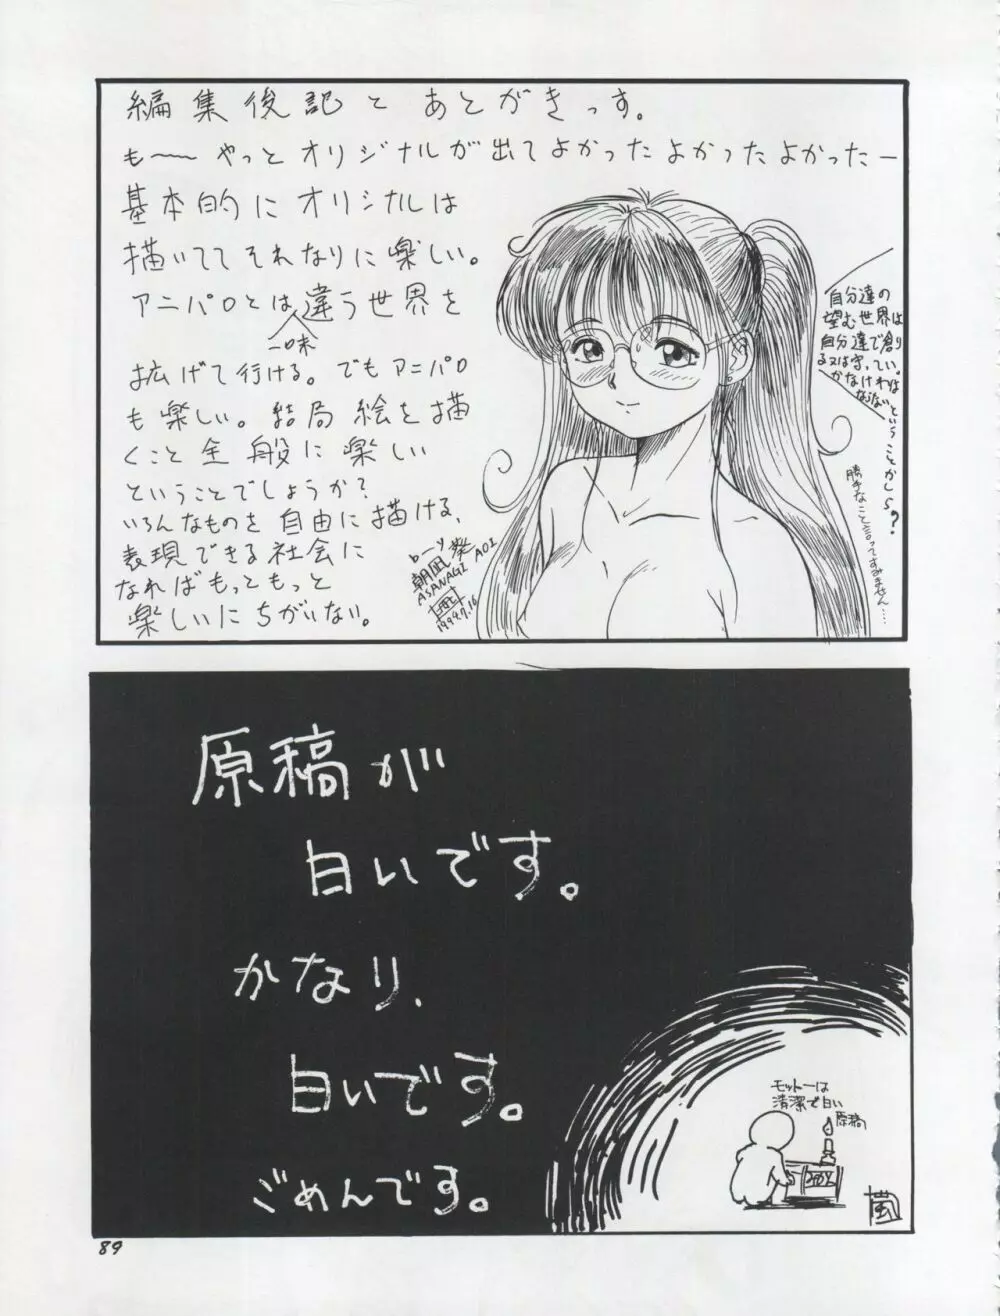 編集後記とあとがきっす。
も〜〜やっとオリジナルが出てよかったよかったよかったー
基本的にオリジナルは
描いててそれなりに楽しい。
アニパロとは一味違う世界を
拡げて行ける。でもアニパロ
も楽しい。結局絵を描
くこと全般に楽しい
ということでしょうか？
いろんなものを自由に描ける、
表現できる社会に
なればもっともっと
楽しいにちがいない。
朝凪葵
ASANAGI AOI
1994.7.16
自分達の
望む世界は
自分達で創り
る又は守ってい
かなければ
ならない
ということかしら？
勝手なこと言ってすみません……
原稿が
白いです。
かなり、
白いです。
ごめんです。
モットーは
清潔で白い
原稿
嵐
89